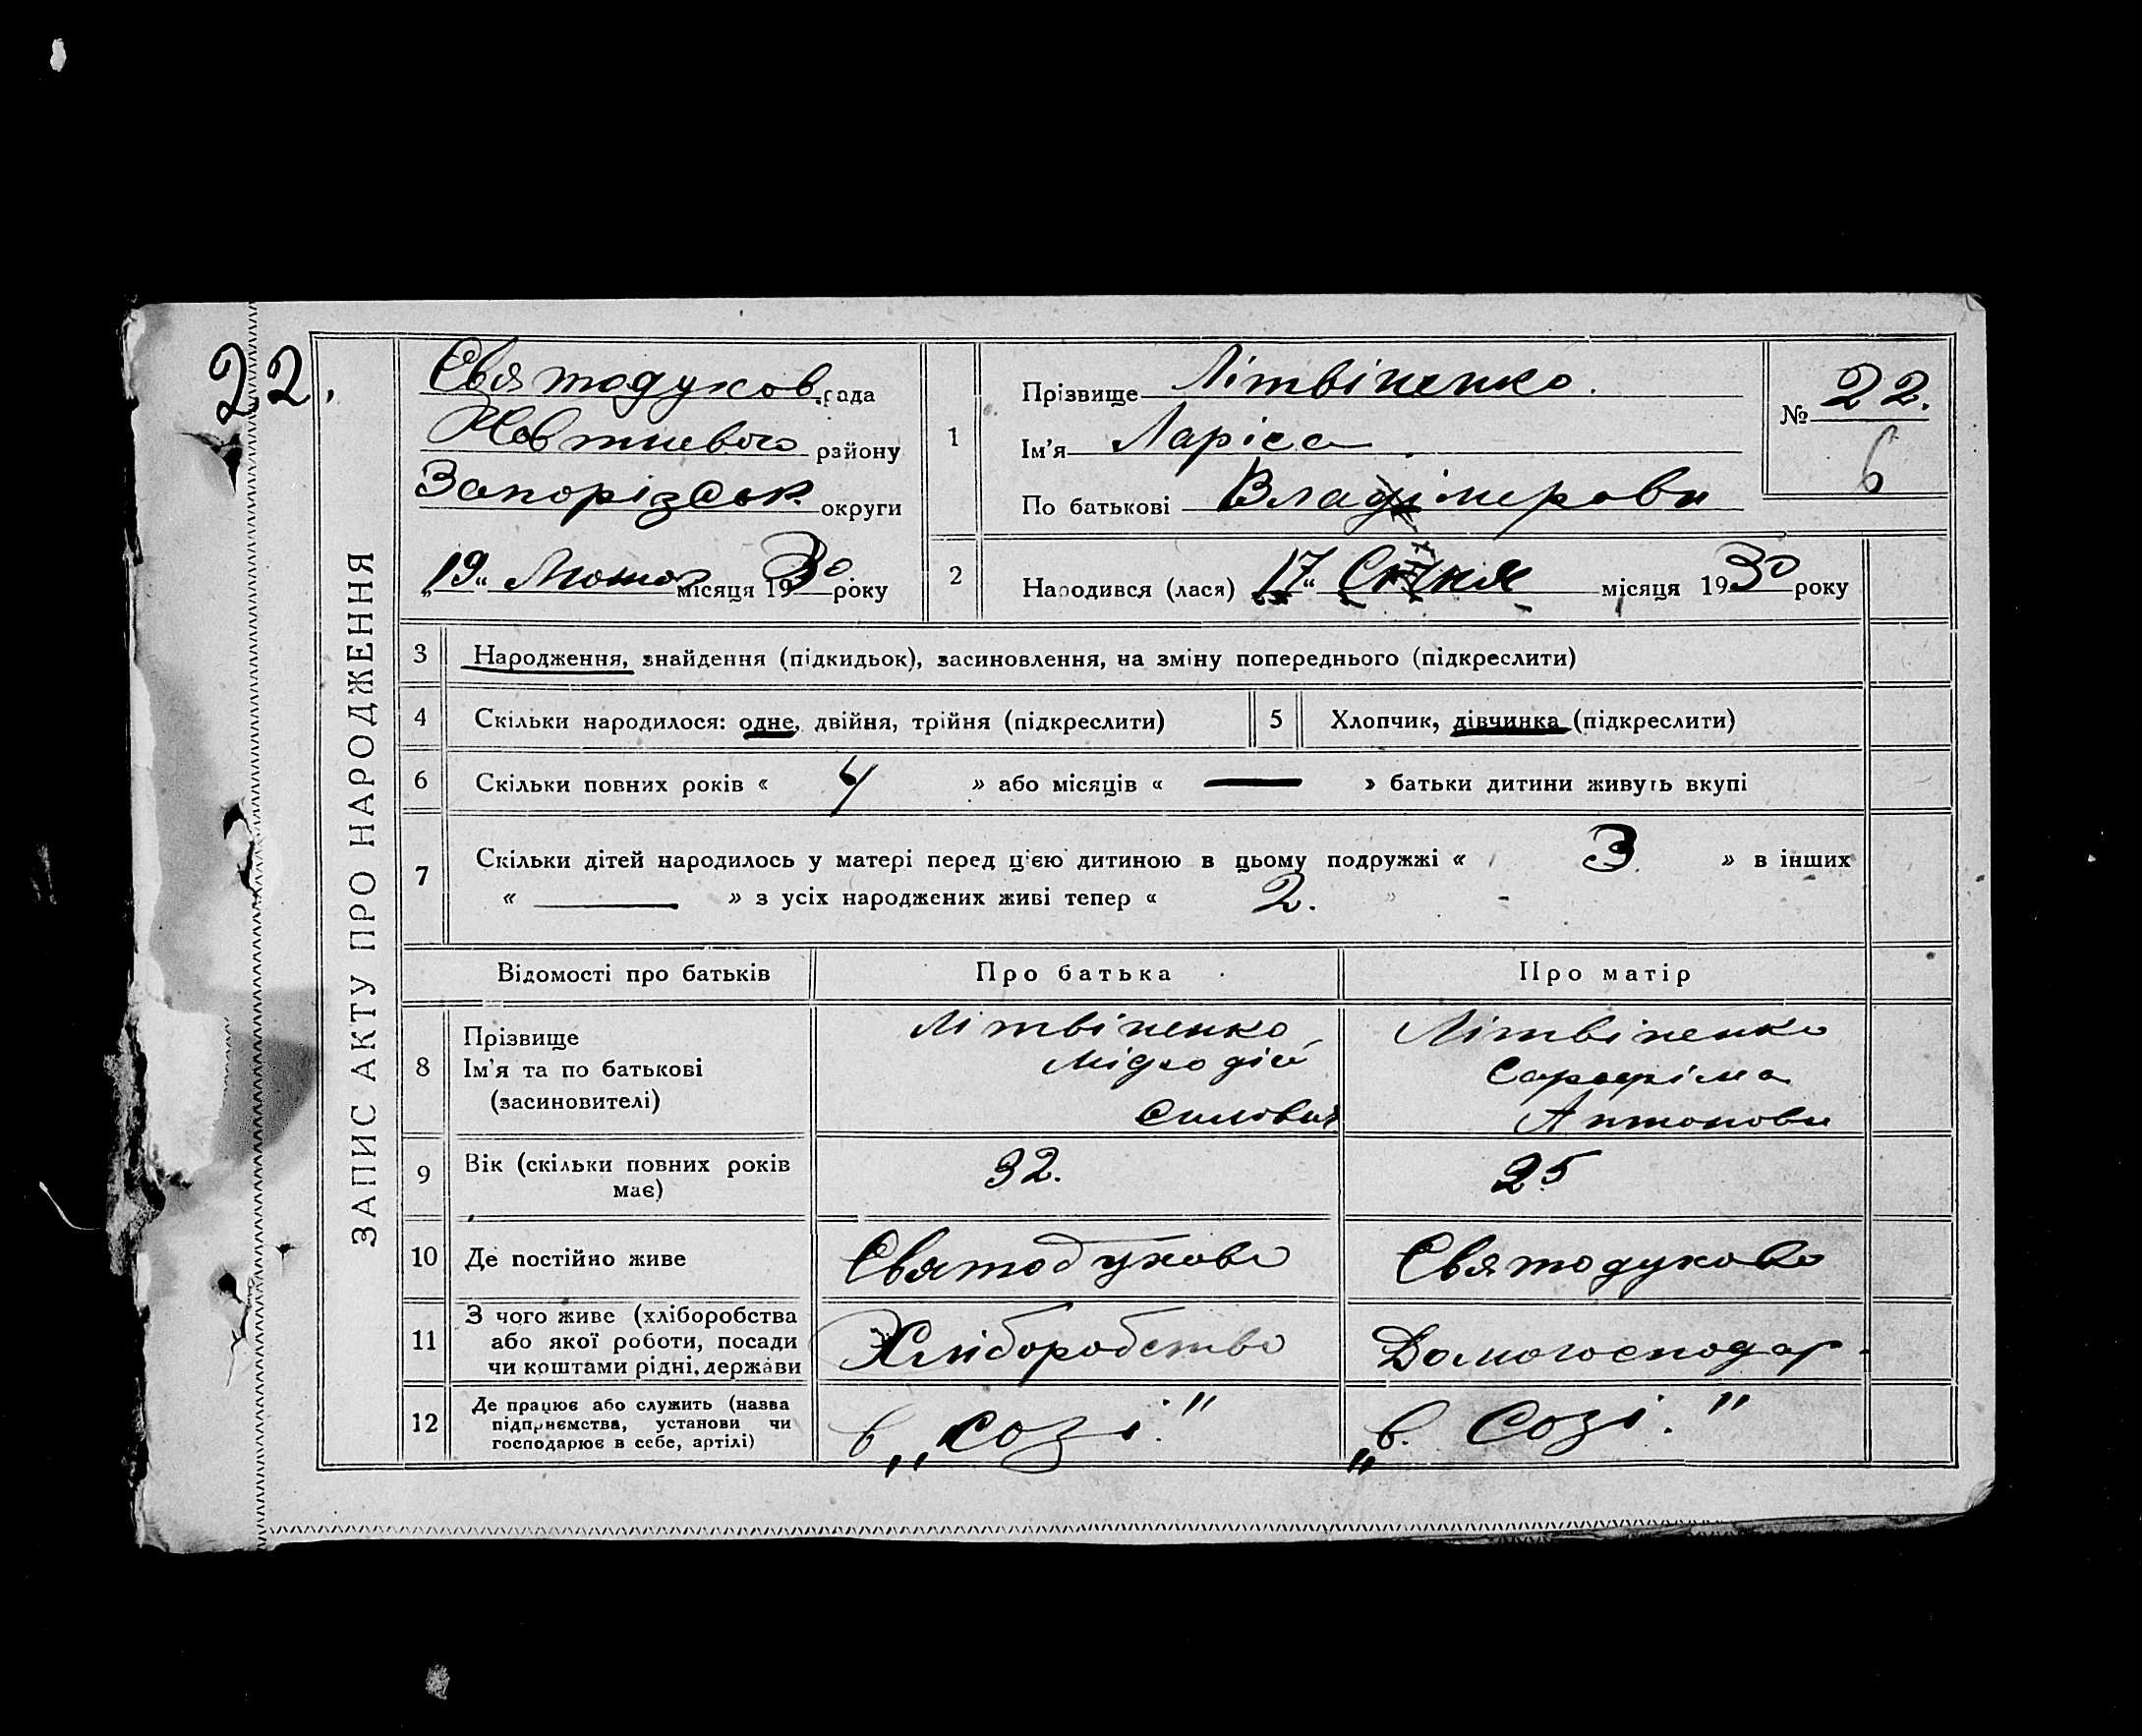 22.
ЗАПИС АКТУ ПРО НАРОДЖЕННЯ
Святодухов рада
Жовтневого району
Запорізськ округи
„19“ Лютого місяця 1930 року
1
Прізвище Літвіненко.
Ім'я Ларіса
По батькові Владімеровн
№ 22.
6
2
Народився (лася) 17“ Січня місяця 1930 року
3 Народження, знайдення (підкидьок), засиновлення, на зміну попереднього (підкреслити)
4 Скільки народилося: одне, двійня, трійня (підкреслити)
5 Хлопчик, дівчинка (підкреслити)
6 Скільки повних років « 4 » або місяців « — » батьки дитини живуть вкупі
7 Скільки дітей народилось у матері перед цією дитиною в цьому подружжі « 3 » в інших
« — » з усіх народжених живі тепер « 2. »
Відомості про батьків Про батька Про матір
8
Прізвище
Ім'я та по батькові
(засновителі)
Літвіненко
Літвіненко
Сарафіма
Антоновн
9 Вік (скільки повних років
має)
32. 25
10 Де постійно живе Святодухова Святодухово
11
З чого живе (хліборобства
або якої роботи, посади
чи коштами рідні, держави
Хліборобство Домогосподар.
12
Де працює або служить (назва
підприємства, установи чи
господарює в себе, артілі)
в „созі." „в. Созі."